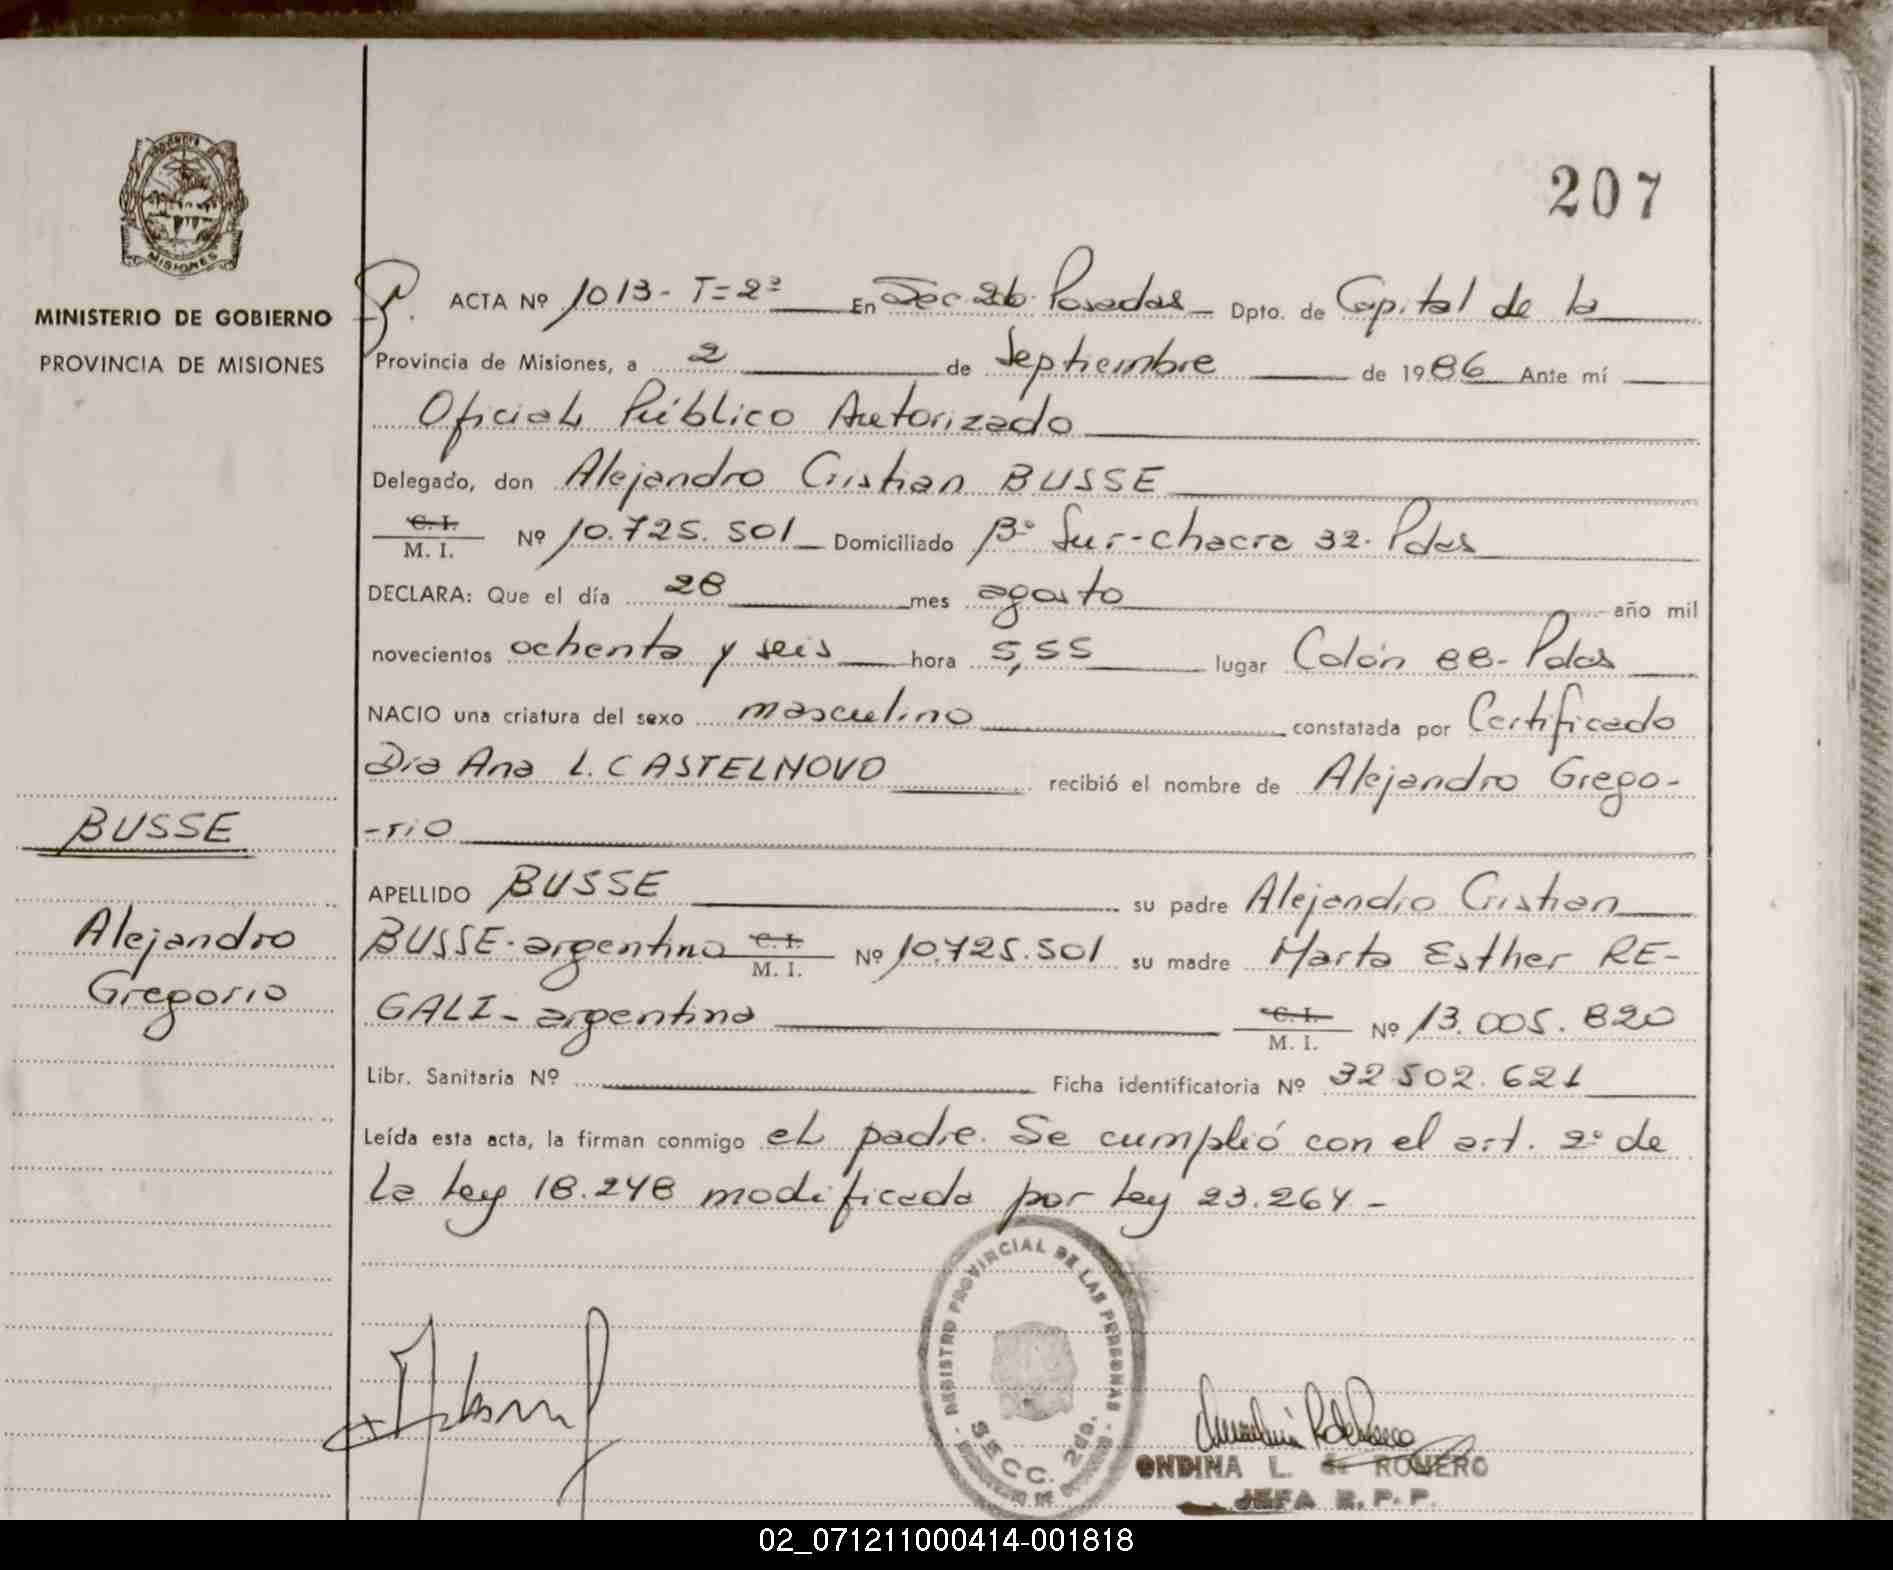 207
MISIONES
MINISTERIO DE GOBIERNO
PROVINCIA DE MISIONES
ACTA Nº 1013 - T=2º En Sec. 2da. Posadas Dpto. de Capital de la
Provincia de Misiones, a 2 de Septiembre de 1986 Ante mí
Oficial Público Autorizado
Delegado, don Alejandro Cristian BUSSE
C. I.
M. I. Nº 10.725.501 Domiciliado Bº Sur-chacra 32. Pdas
DECLARA: Que el día 28 mes agosto año mil
novecientos ochenta y seis hora 5,55 lugar Colón 88- Pdas
NACIO una criatura del sexo masculino constatada por Certificado
Dra Ana L. CASTELNOVO recibió el nombre de Alejandro Grego-
-rio
BUSSE
Alejandro
Gregorio
APELLIDO BUSSE su padre Alejandro Cristian
BUSSE-argentino C. I. M. I. Nº 10.725.501 su madre Marta Esther RE-
GALI- argentina C. I. M. I. Nº 13.005.820
Libr. Sanitaria Nº Ficha identificatoria Nº 32 502.621
Leída esta acta, la firman conmigo el padre. Se cumplió con el art. 2º de
la ley 18.248 modificada por ley 23.264.-
REGISTRO PROVINCIAL DE LAS PERSONAS
SECC. 2da.
ONDINA L. de ROMERO
JEFA R. P. P.
02_071211000414-001818